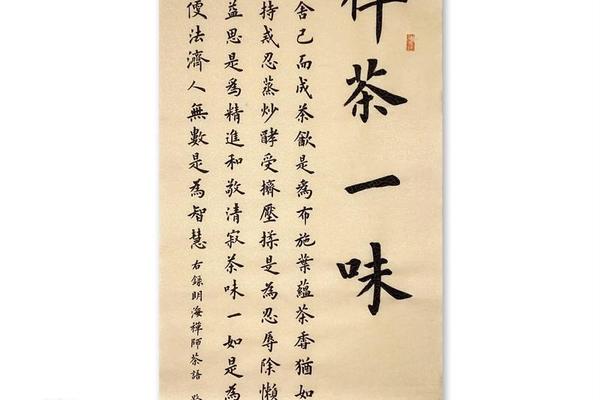 禪茶一味
舍己而成茶飲是爲布施葉蘊茶香猶如
持戒忍蒸炒酵受擠壓揉是為忍辱除懶
益思是爲精進和敬清寂茶味一如是為
便法濟人無數是為智慧 右錄明海禪師茶語